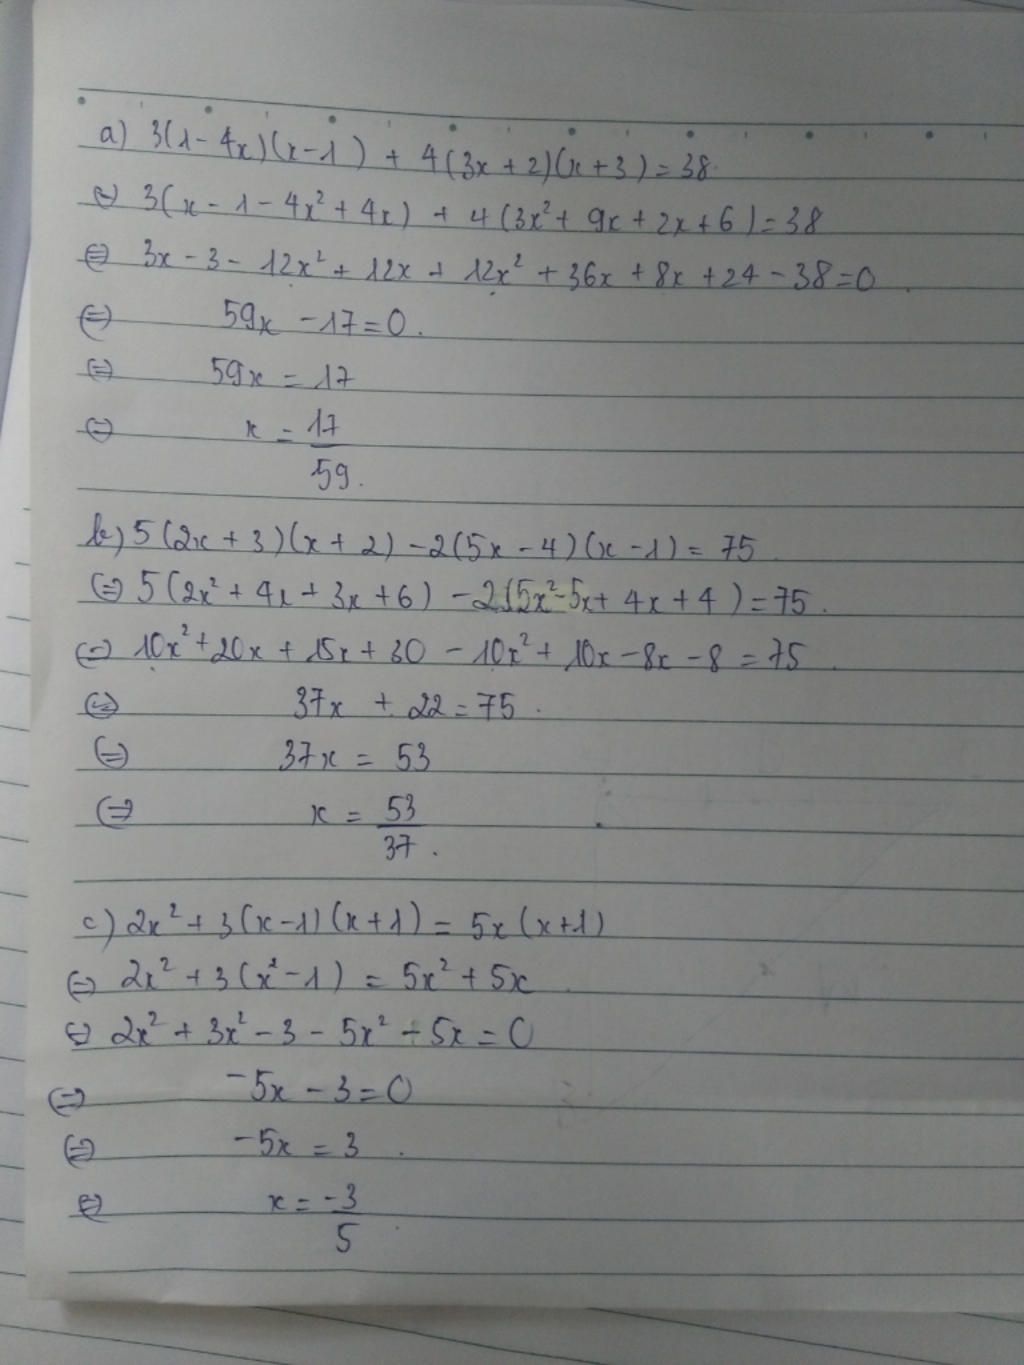 a) 3(1-4x)(x-1) + 4(3x+2)(x+3)=38
⇔ 3(x-1-4x²+4x) + 4(3x²+9x+2x+6)=38
⇔ 3x-3-12x²+12x+12x²+36x+8x+24-38=0.
⇔ 59x-17=0.
⇔ 59x = 17
⇔ x = 17/59.
b) 5(2x+3)(x+2)-2(5x-4)(x-1)=75
⇔ 5(2x²+4x+3x+6) - 2(5x²-5x+4x+4)=75.
⇔ 10x²+20x+15x+30-10x²+10x-8x-8=75
⇔ 37x+22=75.
⇔ 37x = 53
⇔ x = 53/37.
c) 2x²+3(x-1)(x+1)=5x(x+1)
⇔ 2x²+3(x²-1) = 5x²+5x
⇔ 2x²+3x²-3-5x²-5x=0
⇔ -5x-3=0
⇔ -5x = 3.
⇔ x = -3/5.